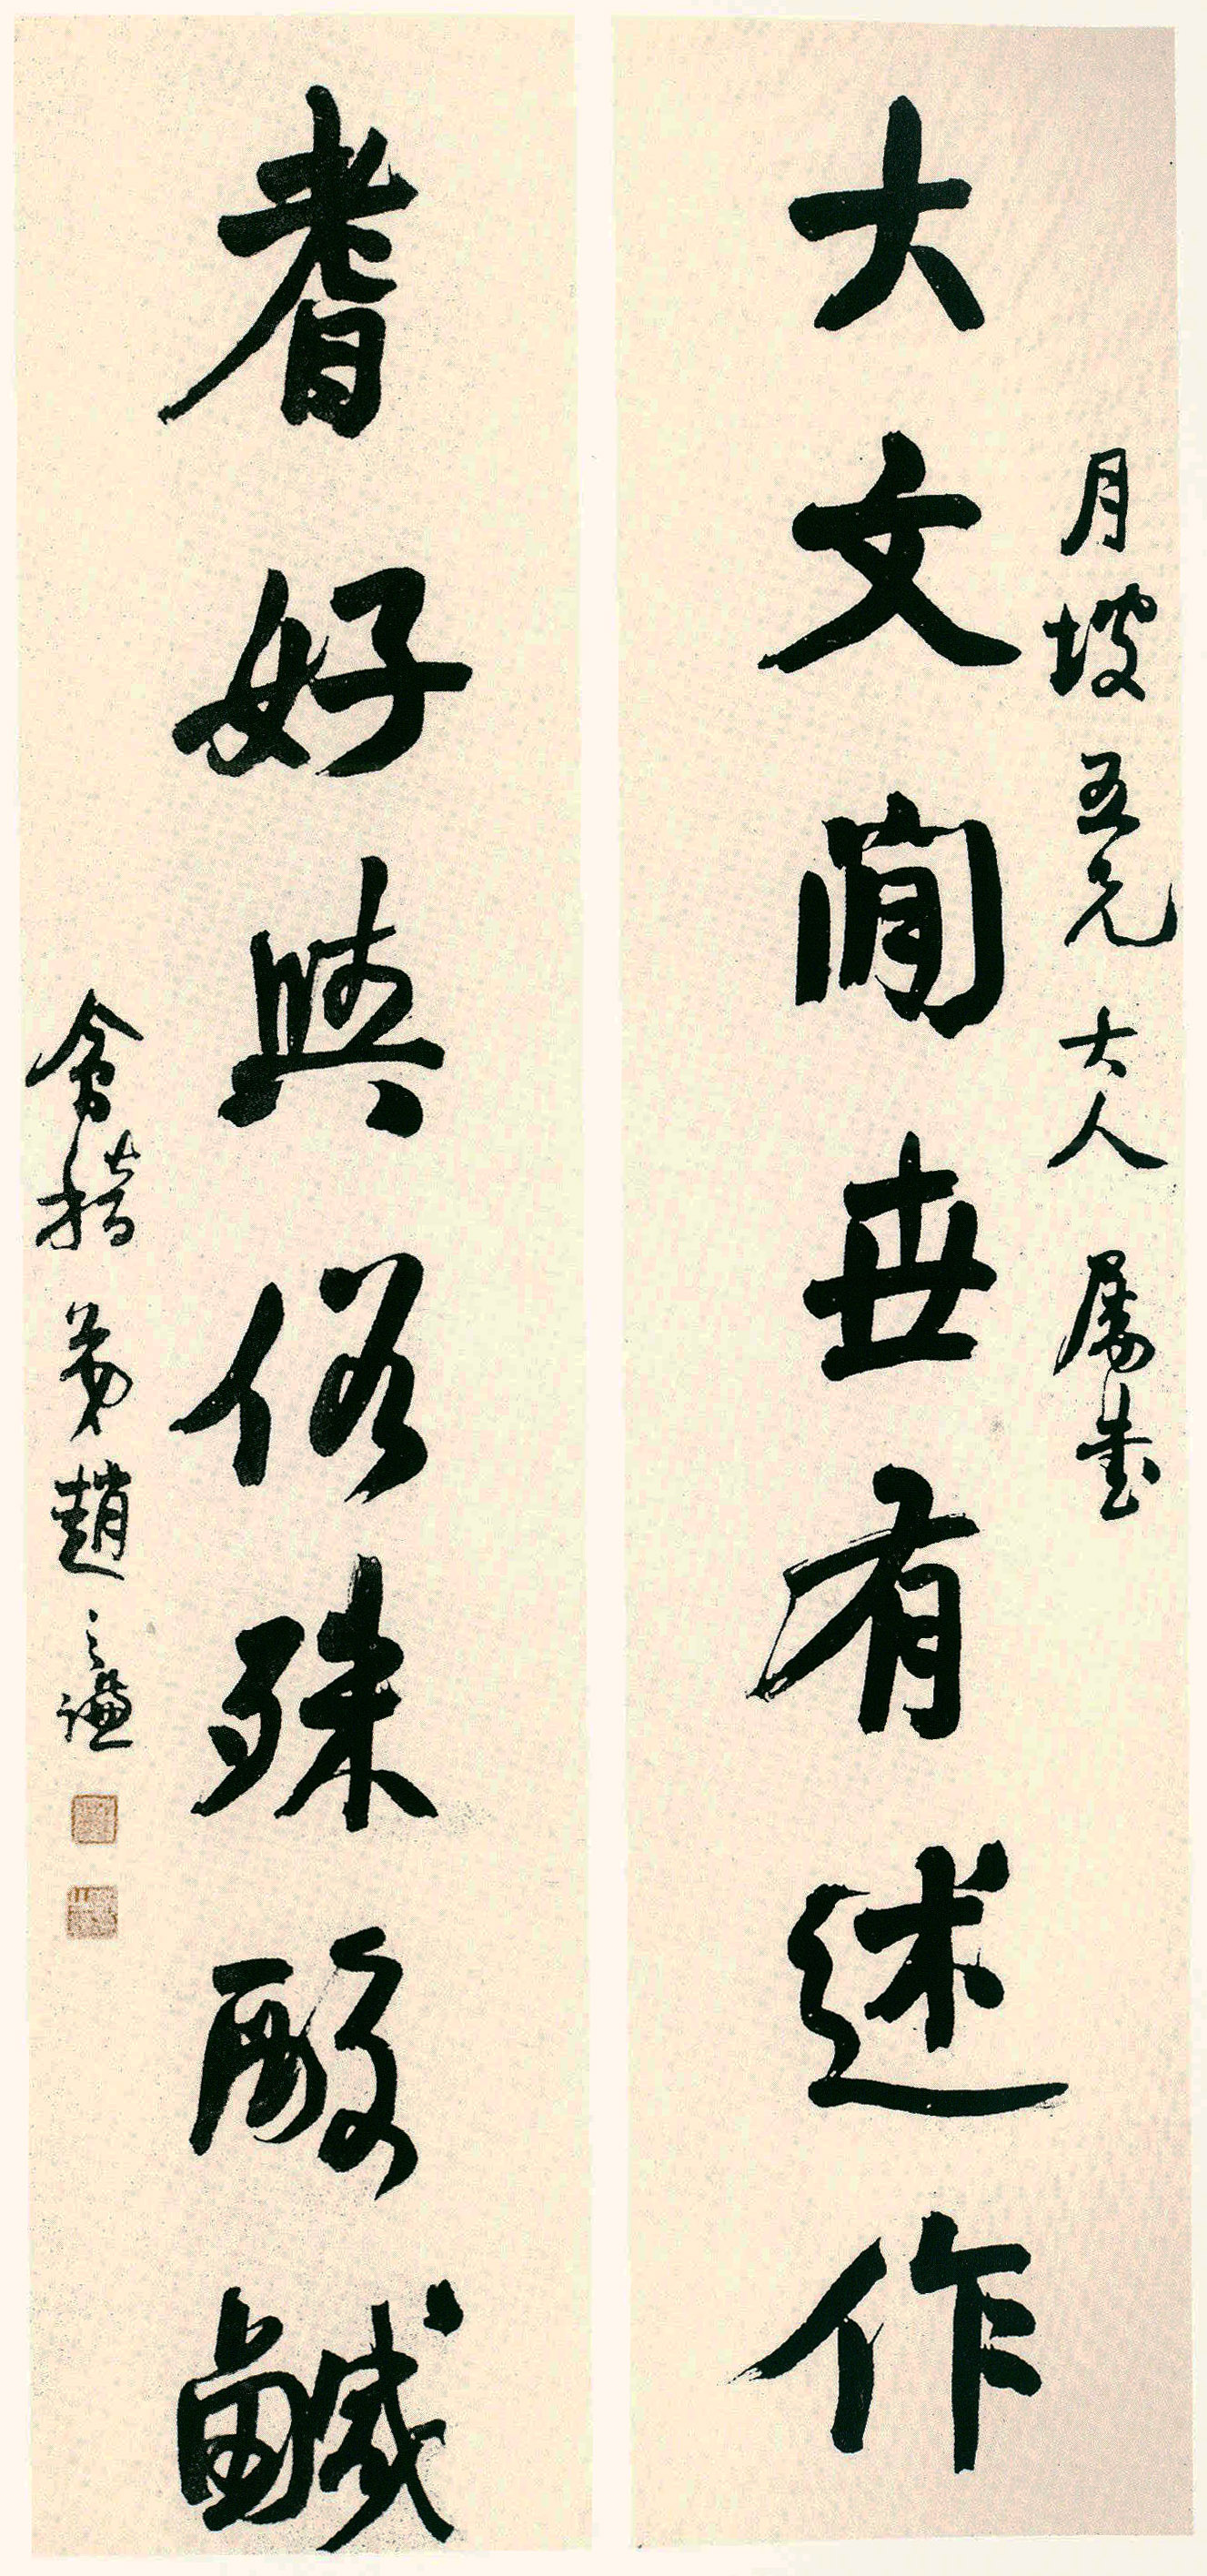 月坡五兄大人屬書
大文閒世有述作
耆好與俗殊酸鹹
弟趙之謙